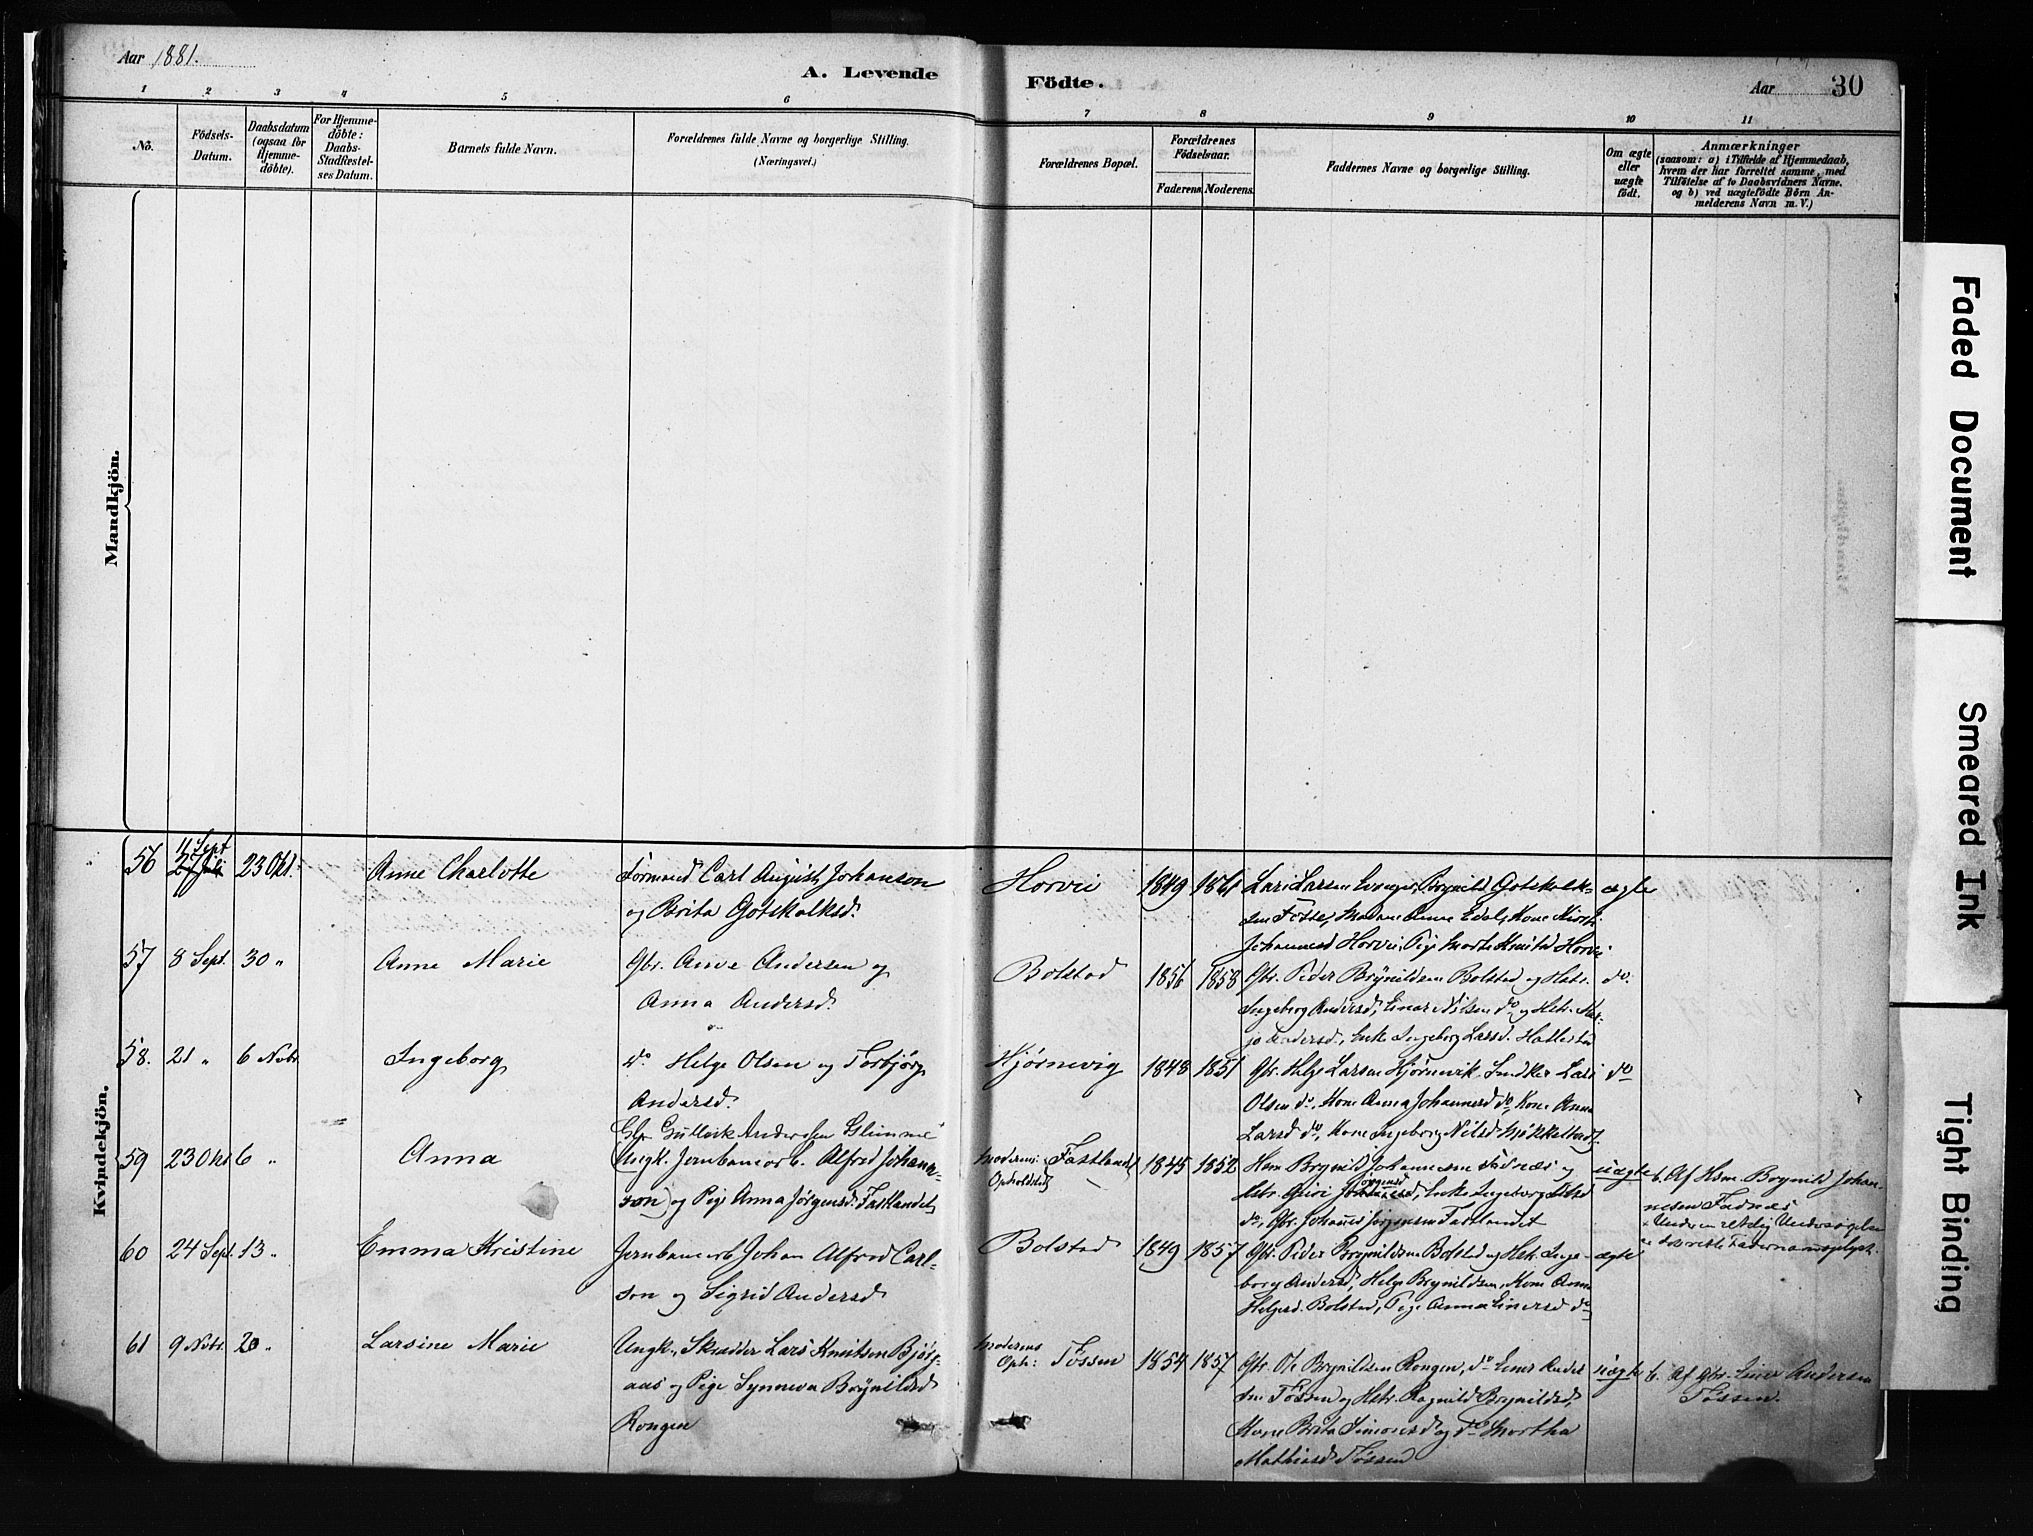 Aar 1881.
A. Levende Födte.
Aar
30
1 2 3 4 5 6 7 8 9 10 11
No.
Födsels-
Datum.
Daabsdatum
(ogsaa for
Hjemme-
döbte).
For Hjemme-
döbte:
Daabs-
Stadfæstel-
ses Datum.
Barnets fulde Navn.
Forældrenes fulde Navne og borgerlige Stilling.
(Næringsvei.)
Forældrenes Bopæl.
Forældrenes
Födselsaar.
Faderens. Moderens.
Faddernes Navne og borgerlige Stilling.
Om ægte
eller
uægte
födt.
Anmærkninger
(saasom: a) i Tilfælde af Hjemmedaab,
hvem der har forrettet samme, med
Tilföielse af to Daabsvidners Navne.
og b) ved uægtefödte Börn An-
melderens Navn m. V.)
Mandkjön.
Kvindekjön.
56
11 Sept
27 Juli
23 Okt.
Anne Charlotte
Formand Carl August Johanson
og Brita Gotskalksd.
Horvei
1849
1861
Lars Larsen Evanger, Brynild Gotskalk-
sen Fosse, Madame Anne Edal, Kone Kirst.
Johannesd Horvei, Pige Marta Knutsd Horvei
ægte
57
8 Sept.
30 "
Anne Marie
Gbr. Arne Andersen og
Anna Andersd.
Bolstad
1856
1858
Gbr. Peder Brynildsen Bolstad og Hstr.
Ingeborg Andersd, Einar Nilsen do og Hstr. Mar-
Andersd., Enke Ingeborg Larsd.
do.
58.
21 "
6 Nobr
Ingeborg
do Helge Olsen og Torbjørg
Andersd.
Hjørnevig
1848
1851
Gbr. Helge Larsen Hjørnevik. Lars
Olsen do, Kone Anna Johannesd do, Kone Anna
Larsd do, Kone Ingeborg Nilsd Mjøkkelstad
do
59
23 Okt
6 "
Anna
Gbr Gulleik Andersen Glimme
Ungk. Jernbanearb. Alfred Johans-
son) og Pige Anna Jørgensd. Fastlandet
Moderens
Opholdsted
Fastlandet
1845
1852
Hsm Brynild Johannesen Fadnes og
Hstr. Guri Johannesd, Enke Ingeborg
do, Gbr. Johannes Jørgensen Fastlandet
uægte
b. Af Hsm. Brynild Johan-
nesen Fadnes
60
24 Sept.
13 "
Emma Kristine
Jernbanearb Johan Alfred Carl-
son og Sigrid Andersd
Bolstad
1849
1857
Gbr. Peder Brynildsen Bolstad og Hstr. Inge-
borg Andersd, Helge Brynildsen, Kone Anna
Helgesd. Bolstad, Pige Anna Einersd do
ægte
61
9 Nobr.
20 "
Larsine Marie
Ungk., Skrædder Lars Knutsen Bjørg-
aas og Pige Synneva Brynildsd
Rongen
Moderens
Oph:
Føssen
1854
1857
Gbr. Ole Brynildsen Rongen, do Einer Ander
sen Føssen og Hstr. Ragnild Brynildsd,
Kone Brita Simonsd og do Martha
Mathiasd Føssen
uægte
b. Af Gbr. Einer Andersen
Føssen.
Faded Document
Smeared Ink
Tight Binding